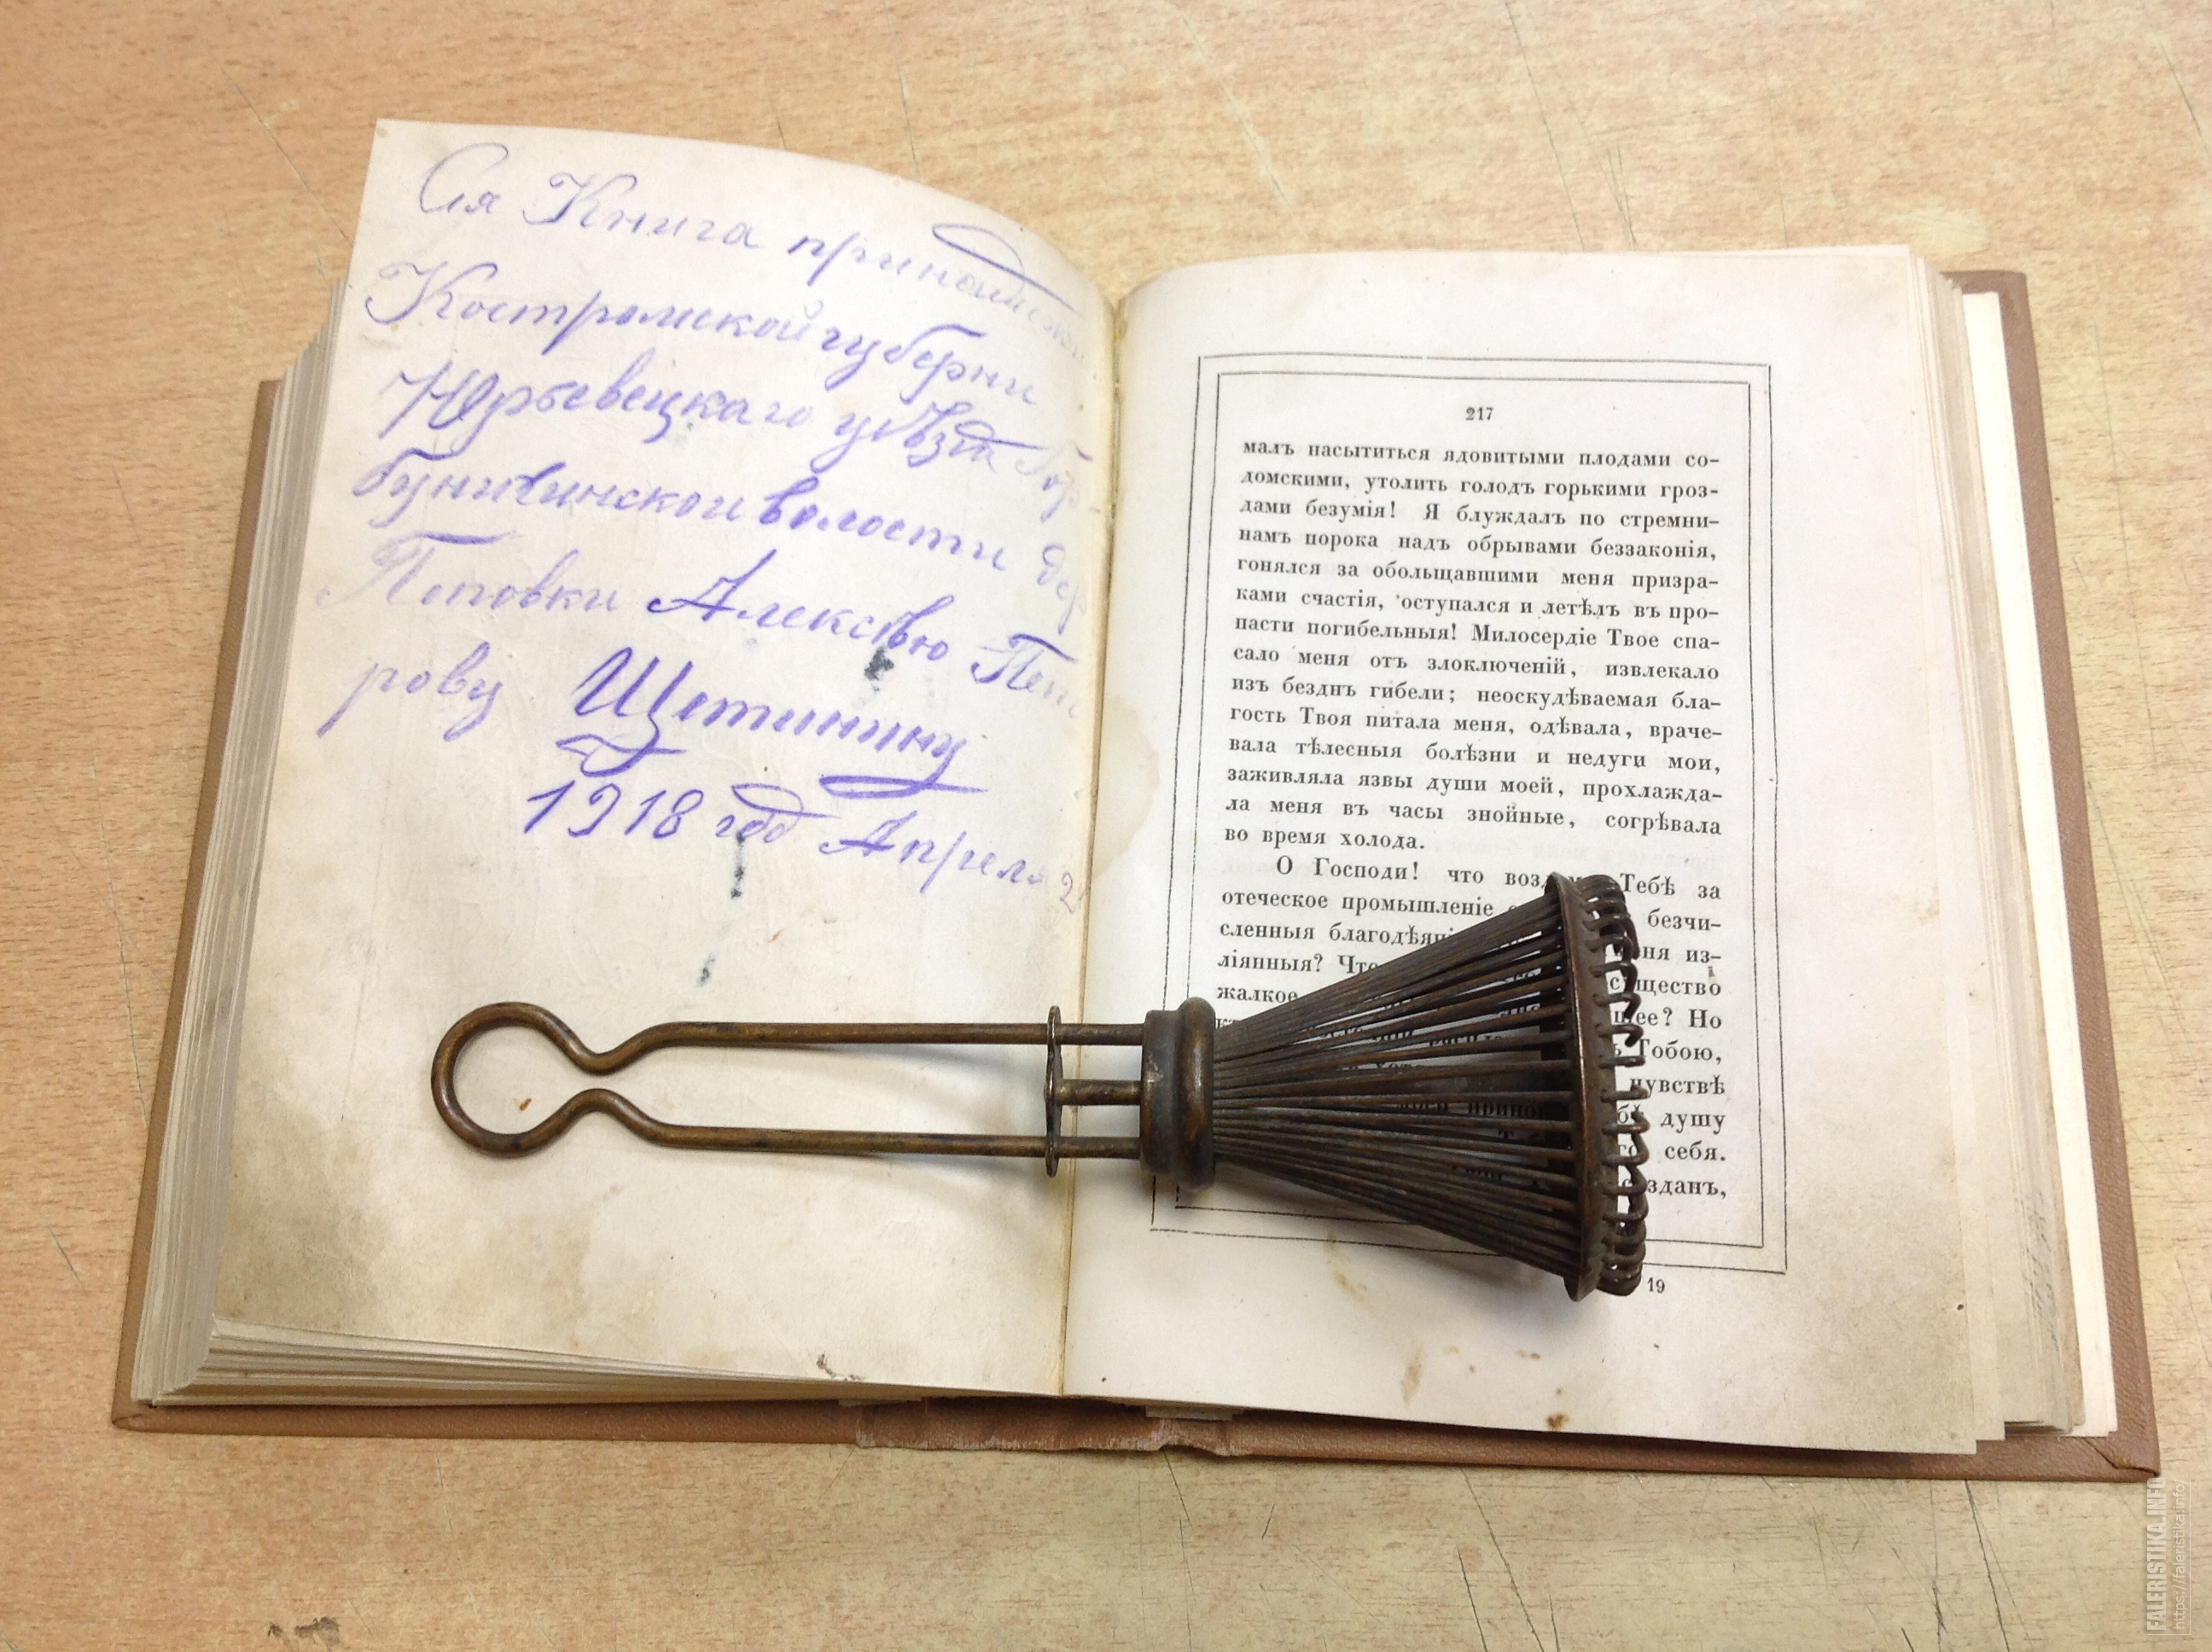 Сія Книга
Костромской губерни
Юрьевецкаго уѣзда
волости дер
Поповки Алексѣю Пет
рову Щетинину
1918 год Апреля 2
217
малъ насытиться ядовитыми плодами со-
домскими, утолить голодъ горькими гроз-
дами безумія! Я блуждалъ по стремни-
намъ порока надъ обрывами беззаконія,
гонялся за обольщавшими меня призра-
ками счастія, оступался и летѣлъ въ про-
пасти погибельныя! Милосердіе Твое спа-
сало меня отъ злоключеній, извлекало
изъ безднъ гибели; неоскудѣваемая бла-
гость Твоя питала меня, одѣвала, враче-
вала тѣлесныя болѣзни и недуги мои,
заживляла язвы души моей, прохлажда-
ла меня въ часы знойные, согрѣвала
во время холода.
О Господи! что Тебѣ за
отеческое промышленіе безчи-
сленныя
ліянныя? из-
жалкое
Но
Тобою,
чувствѣ
душу
себя.
19
FALERISTIKA.INFO
https://faleristika.info/